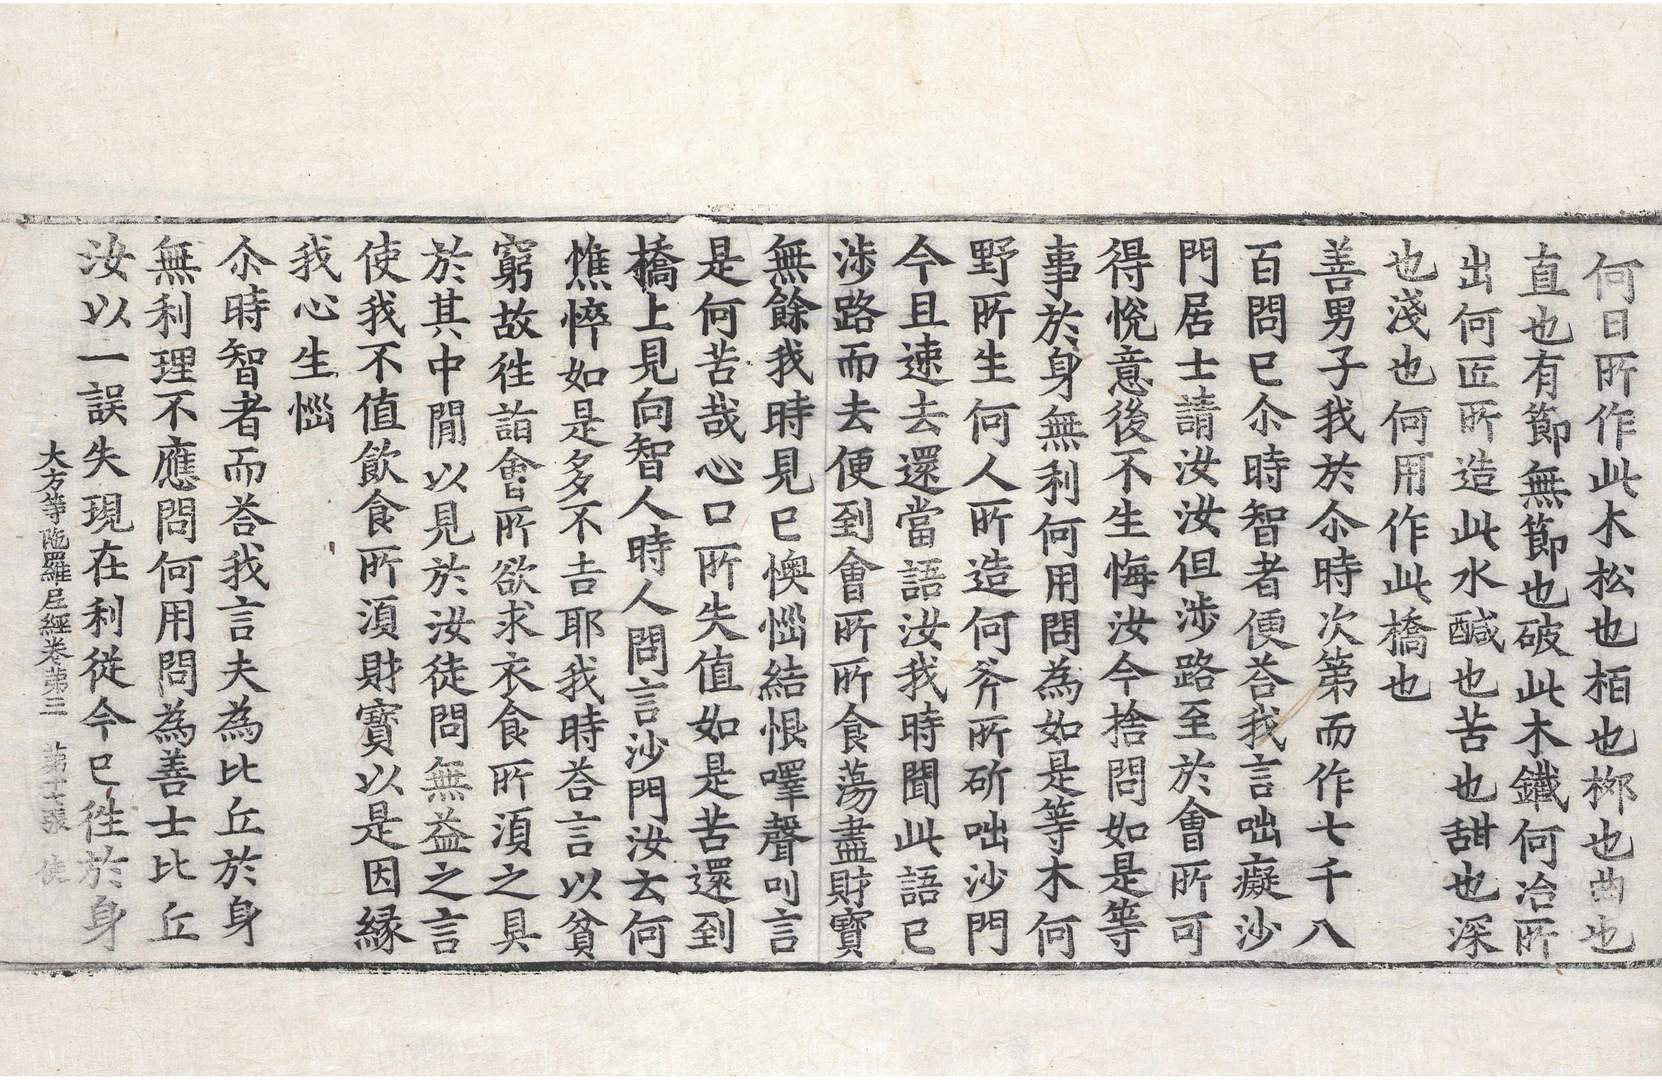 何日所作此木松也栢也㮈也曲也
直也有節無節也破此木鐵何冶所
出何匠所造此水醎也苦也甜也深
也淺也何用作此橋也
善男子我於尒時次第而作七千八
百問已尒時智者便荅我言咄癡沙
門居士請汝汝但涉路至於會所可
得悅意後不生悔汝今捨問如是等
事於身無利何用問為如是等木何
野所生何人所造何斧所斫咄沙門
今且速去還當語汝我時聞此語已
涉路而去便到會所所食蕩盡財寶
無餘我時見已懊惱結恨嗶聲叫言
是何苦哉心口所失值如是苦還到
橋上見向智人時人問言沙門汝去何
燋悴如是多不吉耶我時荅言以貧
窮故徃詣會所欲求衣食所湏之具
於其中閒以見於汝徒問無益之言
使我不值飲食所湏財寶以是因縁
我心生惱
尒時智者而荅我言夫為比丘於身
無利理不應問何用問為善士比丘
汝以一誤失現在利從今已徃於身
大方等陁羅尼經卷第三 第十七張 使